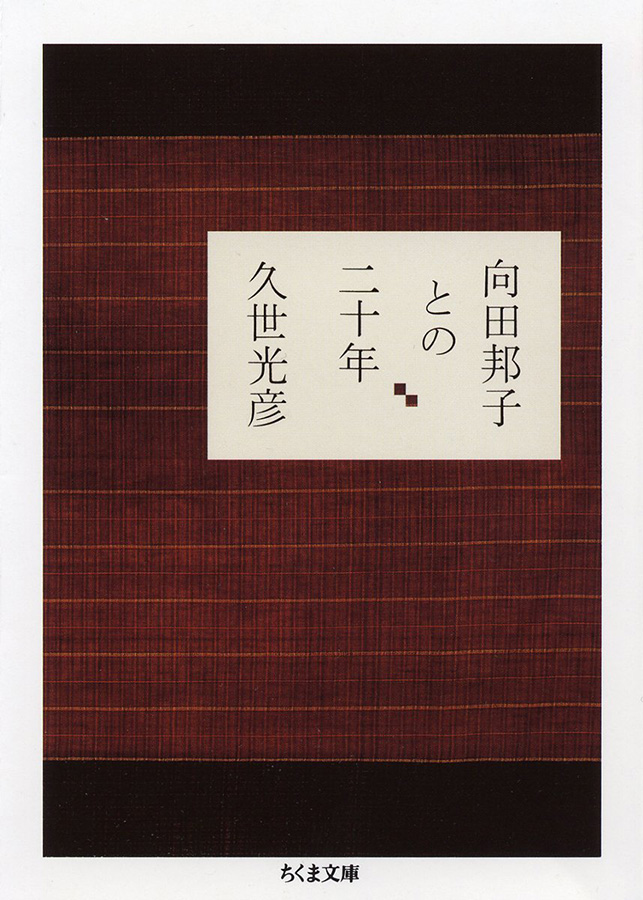 向田邦子
との
二十年
久世光彦
ちくま文庫